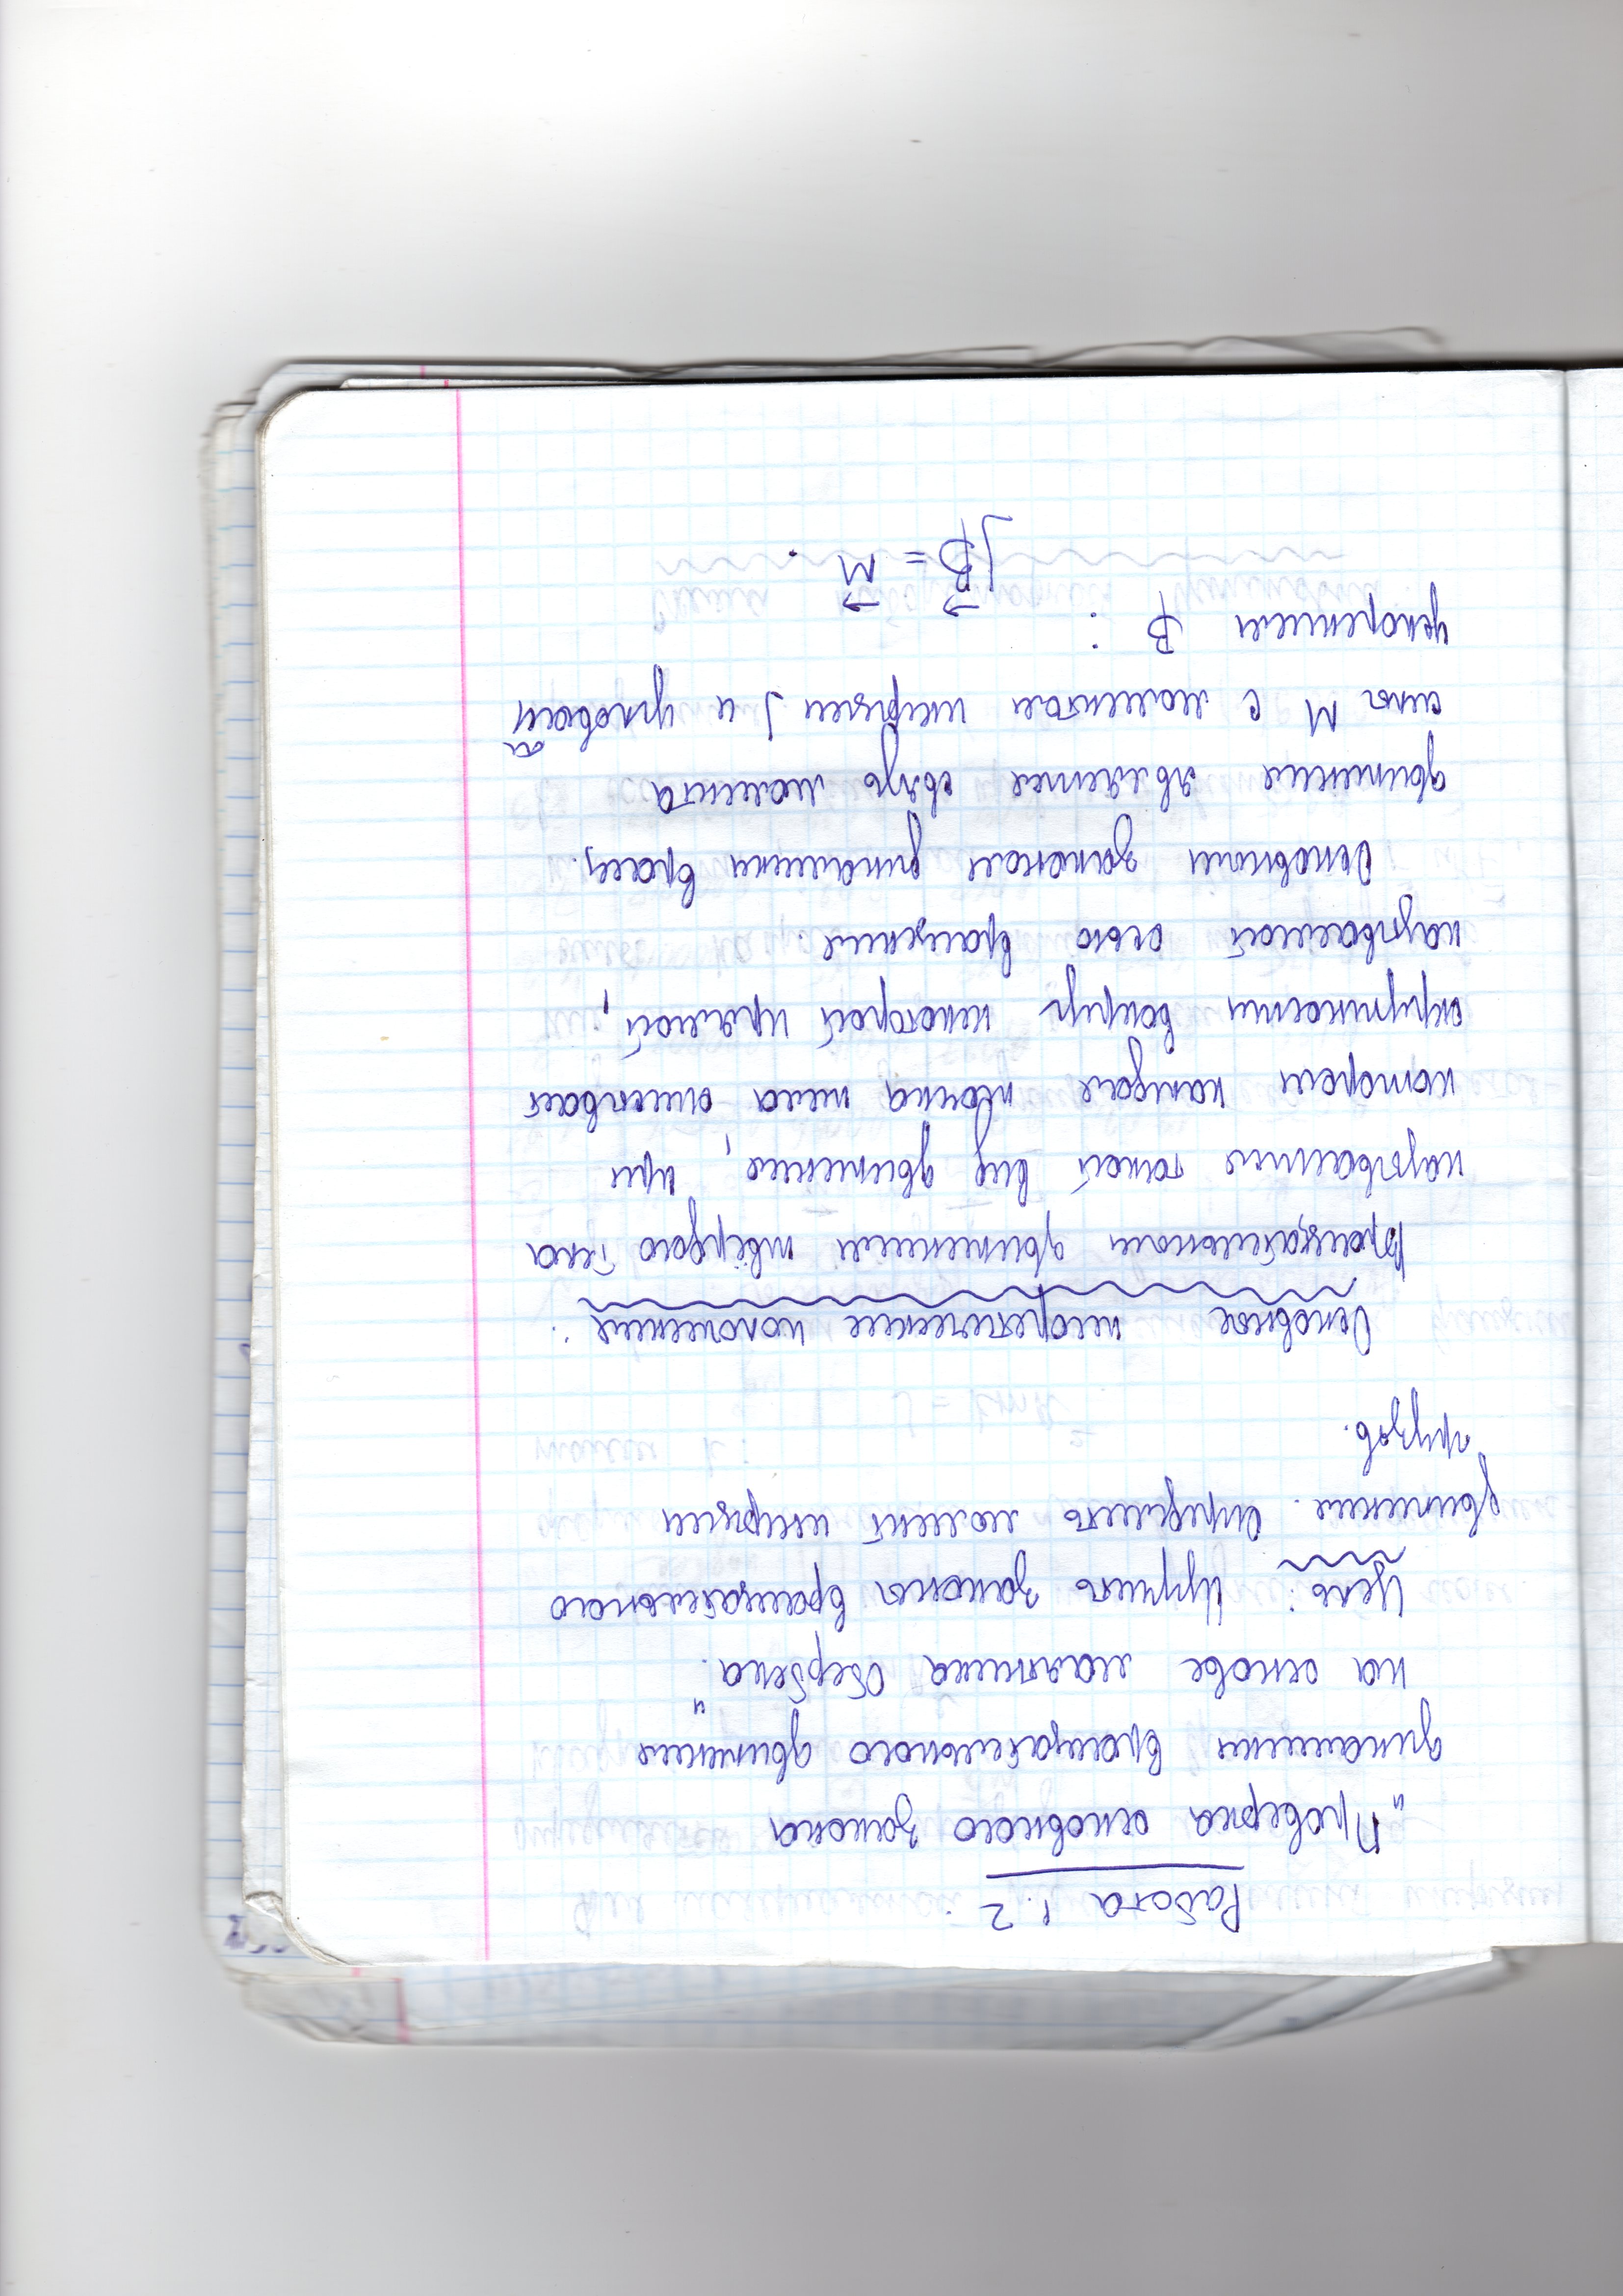 Работа 1.2
„Проверка основного закона
динамики вращательного движения
на основе маятника Обербека."
Цель: Изучить законы вращательного
движения. Определить момент инерции
грузов.
Основные теоретические положения:
Вращательным движением твёрдого тела
называется такой вид движения, при
котором каждая точка тела описывает
окружности вокруг некоторой прямой,
называемой осью вращения.
Основным законом динамики вращ.
движения является связь момента
силы M с моментом инерции J и угловым
ускорением β :
Jβ⃗ = M⃗ .